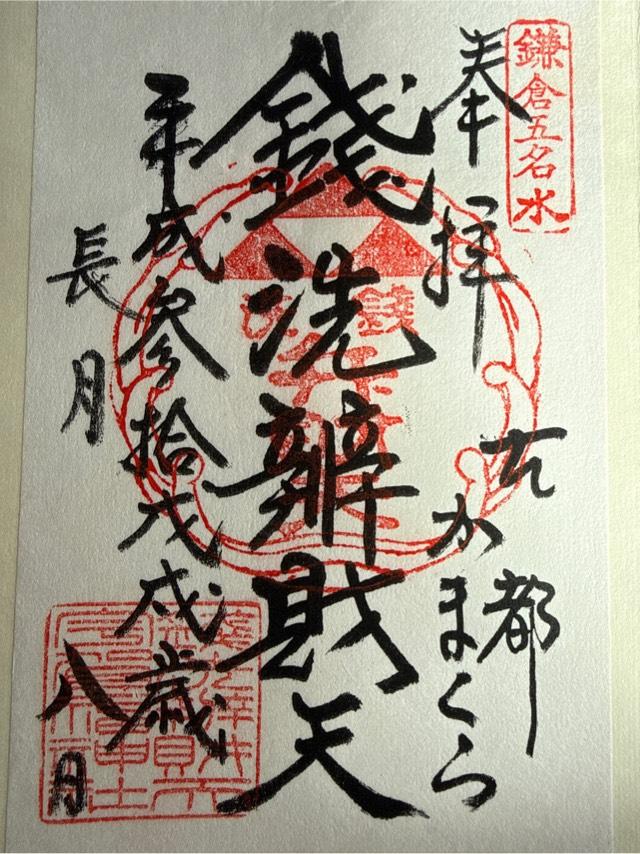 鎌倉五名水
奉拝
古都
かまくら
銭洗辨財天
平成参拾戊戌歳
長月
八日